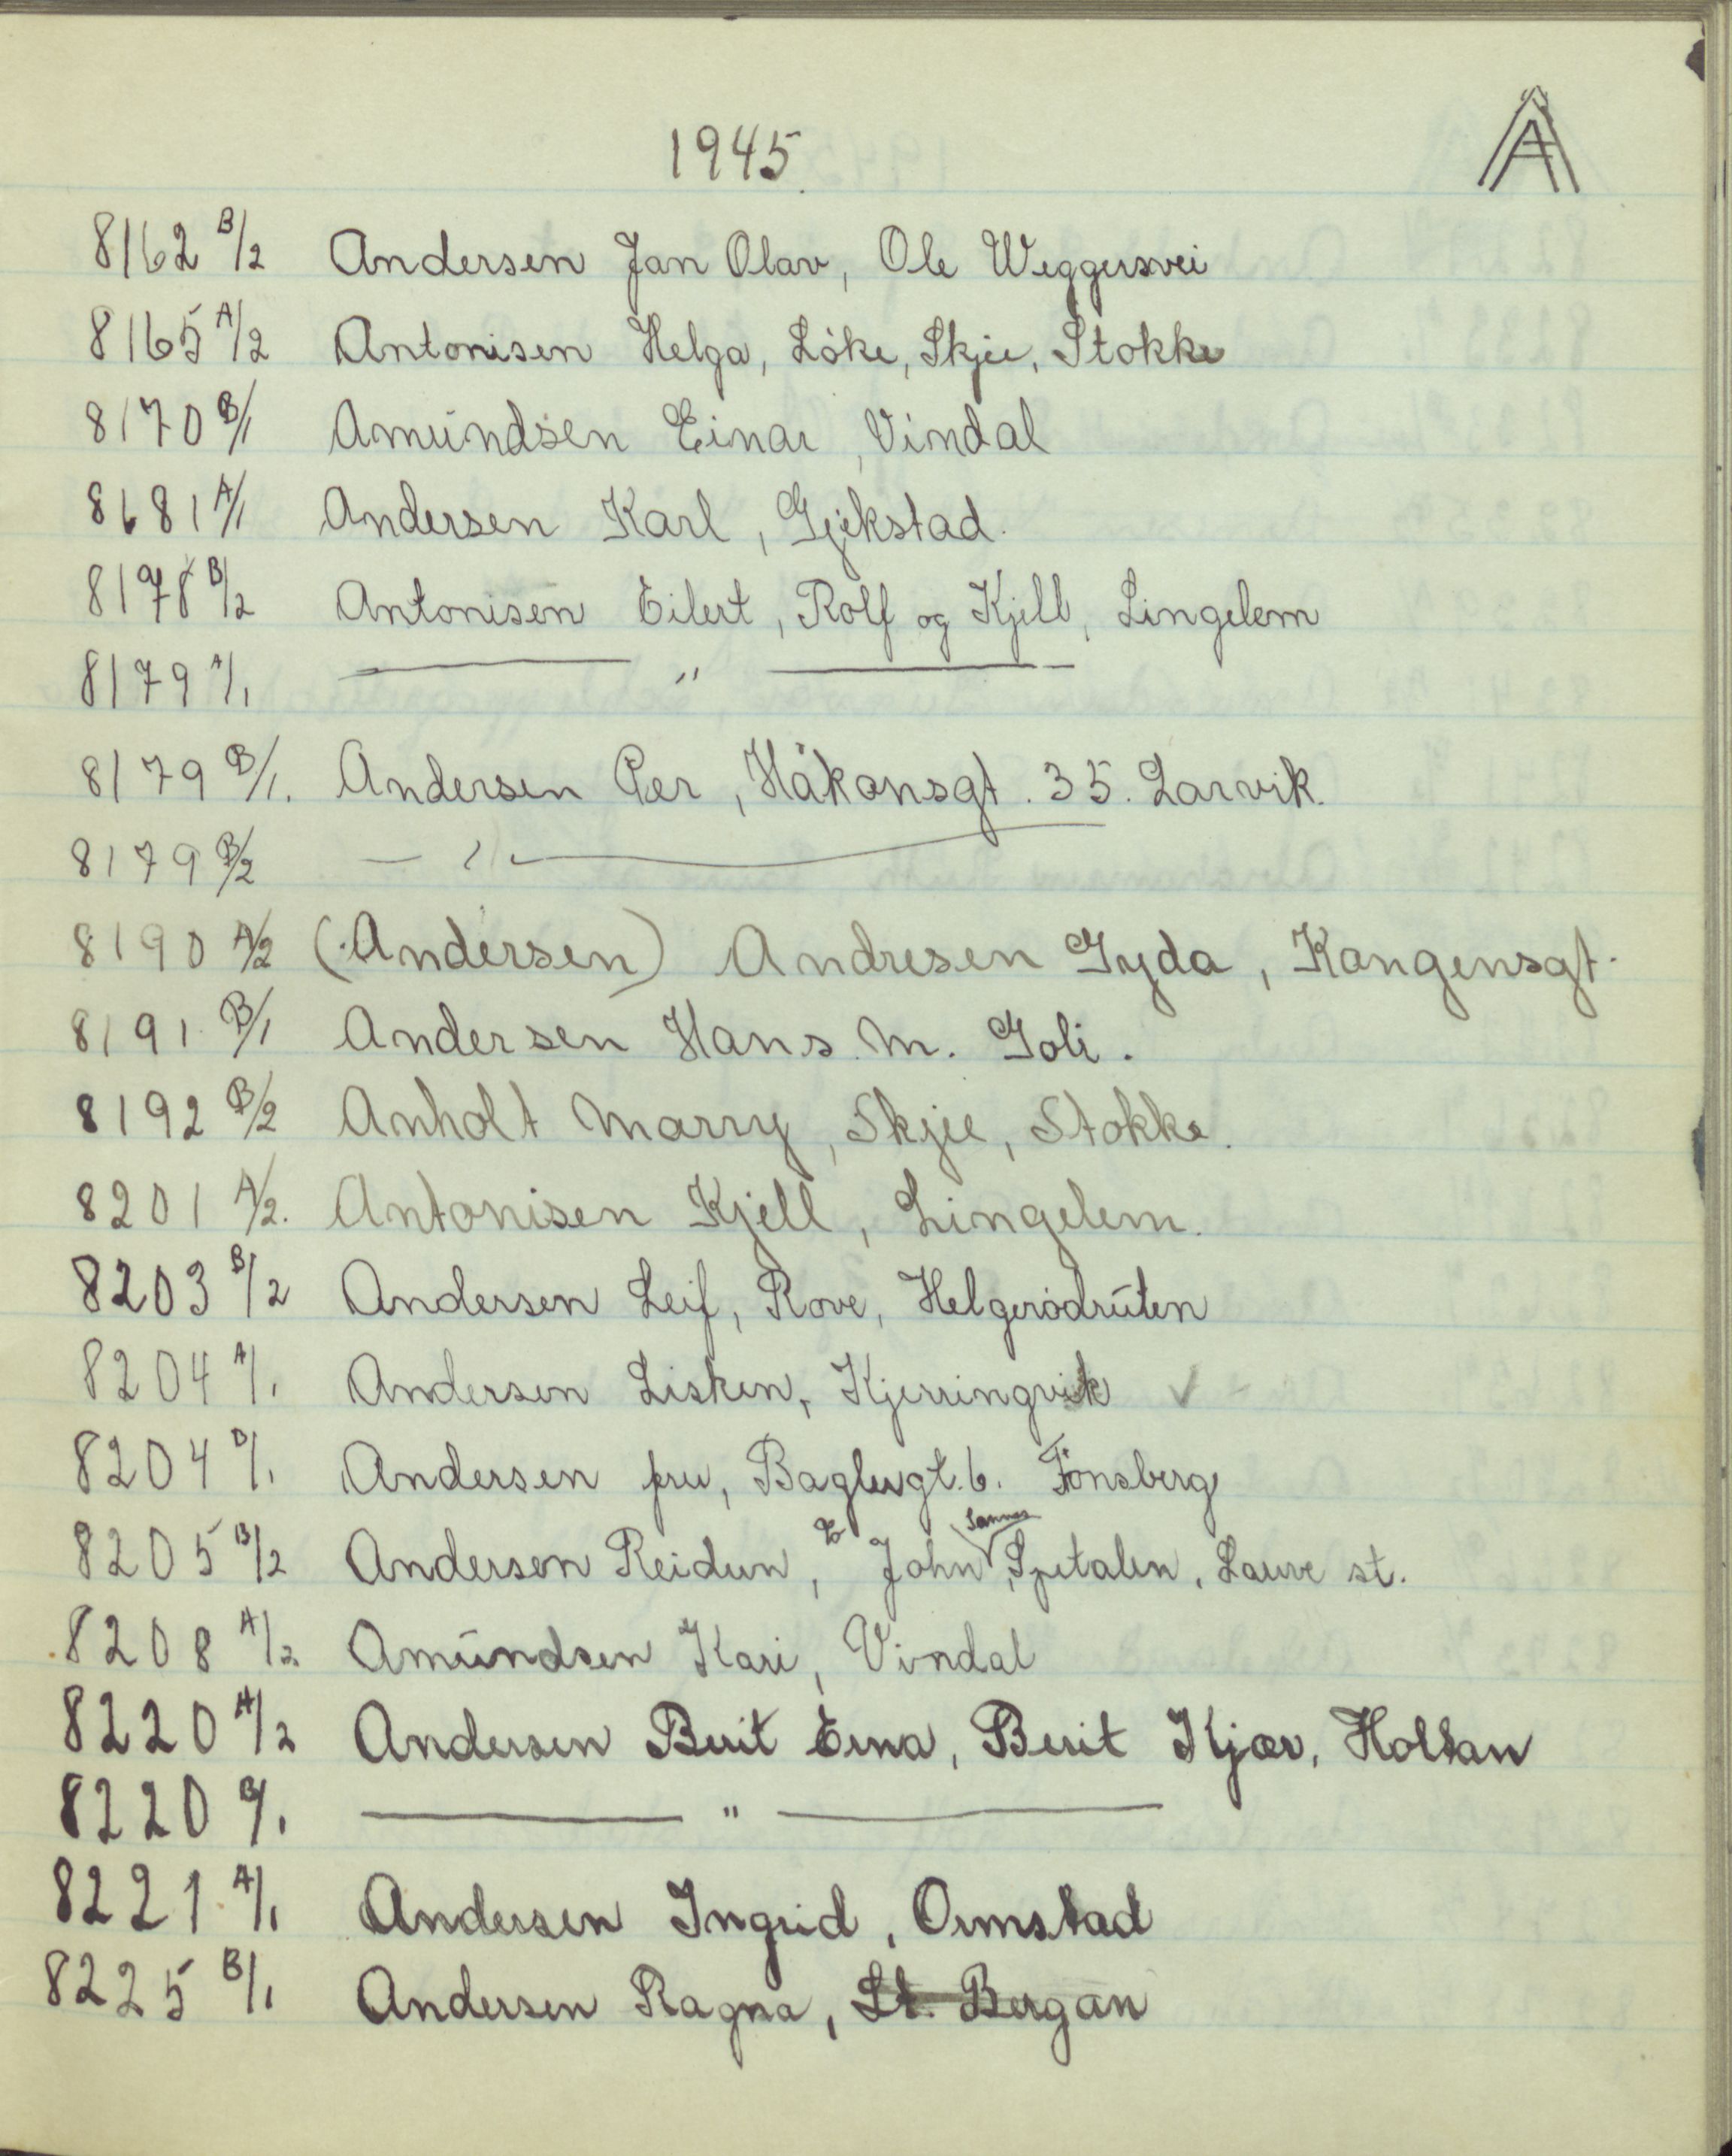 1945.
A
8162 B/2 Andersen Jan Olav, Ole Weggersvei
8165 A/2 Antonisen Helga, Løke, Skjee, Stokke
8170 B/1 Amundsen Einar, Vindal
8181 A/1 Andersen Karl, Gjekstad.
8178 B/2 Antonisen Eilert, Rolf og Kjell, Lingelem
8179 A/1 — " —
8179 B/1. Andersen Per, Håkonsgt. 35. Larvik.
8179 B/2 — " —
8190 A/2 (Andersen) Andresen Gyda, Kongensgt.
8191 B/1 Andersen Hans M. Goli.
8192 B/2 Anholt Marry, Skjee, Stokke.
8201 A/2. Antonisen Kjell, Lingelem.
8203 B/2 Andersen Leif, Rove, Helgerødruten
8204 A/1 Andersen Lisken, Kjerringvik ✓
8204 B/1 Andersen fru, Baglergt. 6. Tønsberg
8205 B/2 Andersen Reidun, John, Sannes Spetalen, Lauve st.
8208 A/2 Amundsen Kari, Vindal
8220 A/2 Andersen Berit Erna, Berit Kjær, Holtan
8220 B/1 — " —
8221 A/1 Andersen Ingrid, Ormstad
8225 B/1 Andersen Ragna, St. Bergan